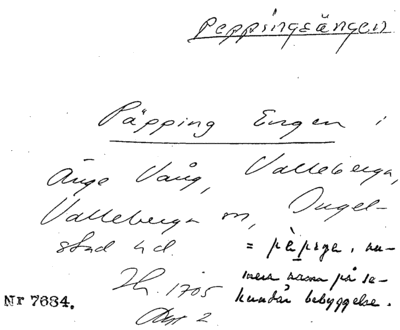 Peppingsängen
Päpping Engen i
Änge Vång, Valleberga,
Valleberga sn, Ingel-
stad hd.
= pèpiga, nu-
mera namn på se-
kundär bebyggelse.
Lk. 1705
Akt 2
Nr 7684.